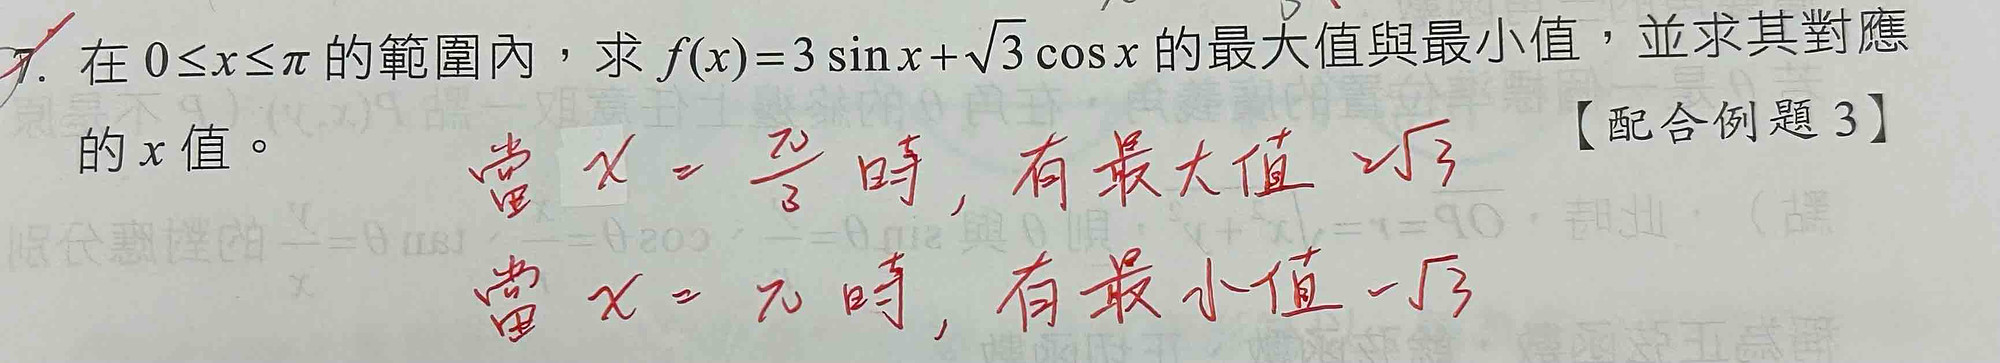 7. 在 0≤x≤π 的範圍內，求 f(x)=3 sin x+√3 cos x 的最大值與最小值，並求其對應
的 x 值。
【配合例題 3】
當 x = π/3 時, 有最大值 2√3
當 x = π 時, 有最小值 -√3